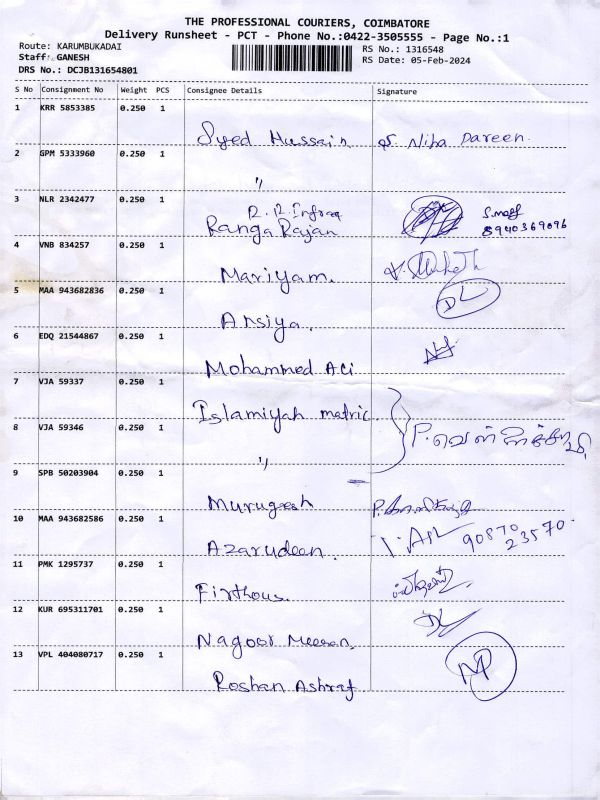 THE PROFESSIONAL COURIERS, COIMBATORE
Delivery Runsheet - PCT - Phone No.:0422-3505555 - Page No.:1
Route: KARUMBUKADAI
Staff: GANESH
DRS No.: DCJB131654801
RS No.: 1316548
RS Date: 05-Feb-2024
S No Consignment No Weight PCS Consignee Details Signature
1 KRR 5853385 0.250 1
Syed Hussain S. Niha Pareen.
2 GPM 5333960 0.250 1
"
3 NLR 2342477 0.250 1
R.R. Infraa
Ranga Rajan
8940369096
4 VNB 834257 0.250 1
Mariyam.
5 MAA 943682836 0.250 1
Ansiya.
6 EDQ 21544867 0.250 1
Mohammed Ali
7 VJA 59337 0.250 1
Islamiyah matric
8 VJA 59346 0.250 1
"
9 SPB 50203904 0.250 1
Murugesh
10 MAA 943682586 0.250 1
Azarudeen. 90870
23570
11 PMK 1295737 0.250 1
Firthous.
12 KUR 695311701 0.250 1
Nagoor Meeran.
13 VPL 404080717 0.250 1
Roshan Ashraf